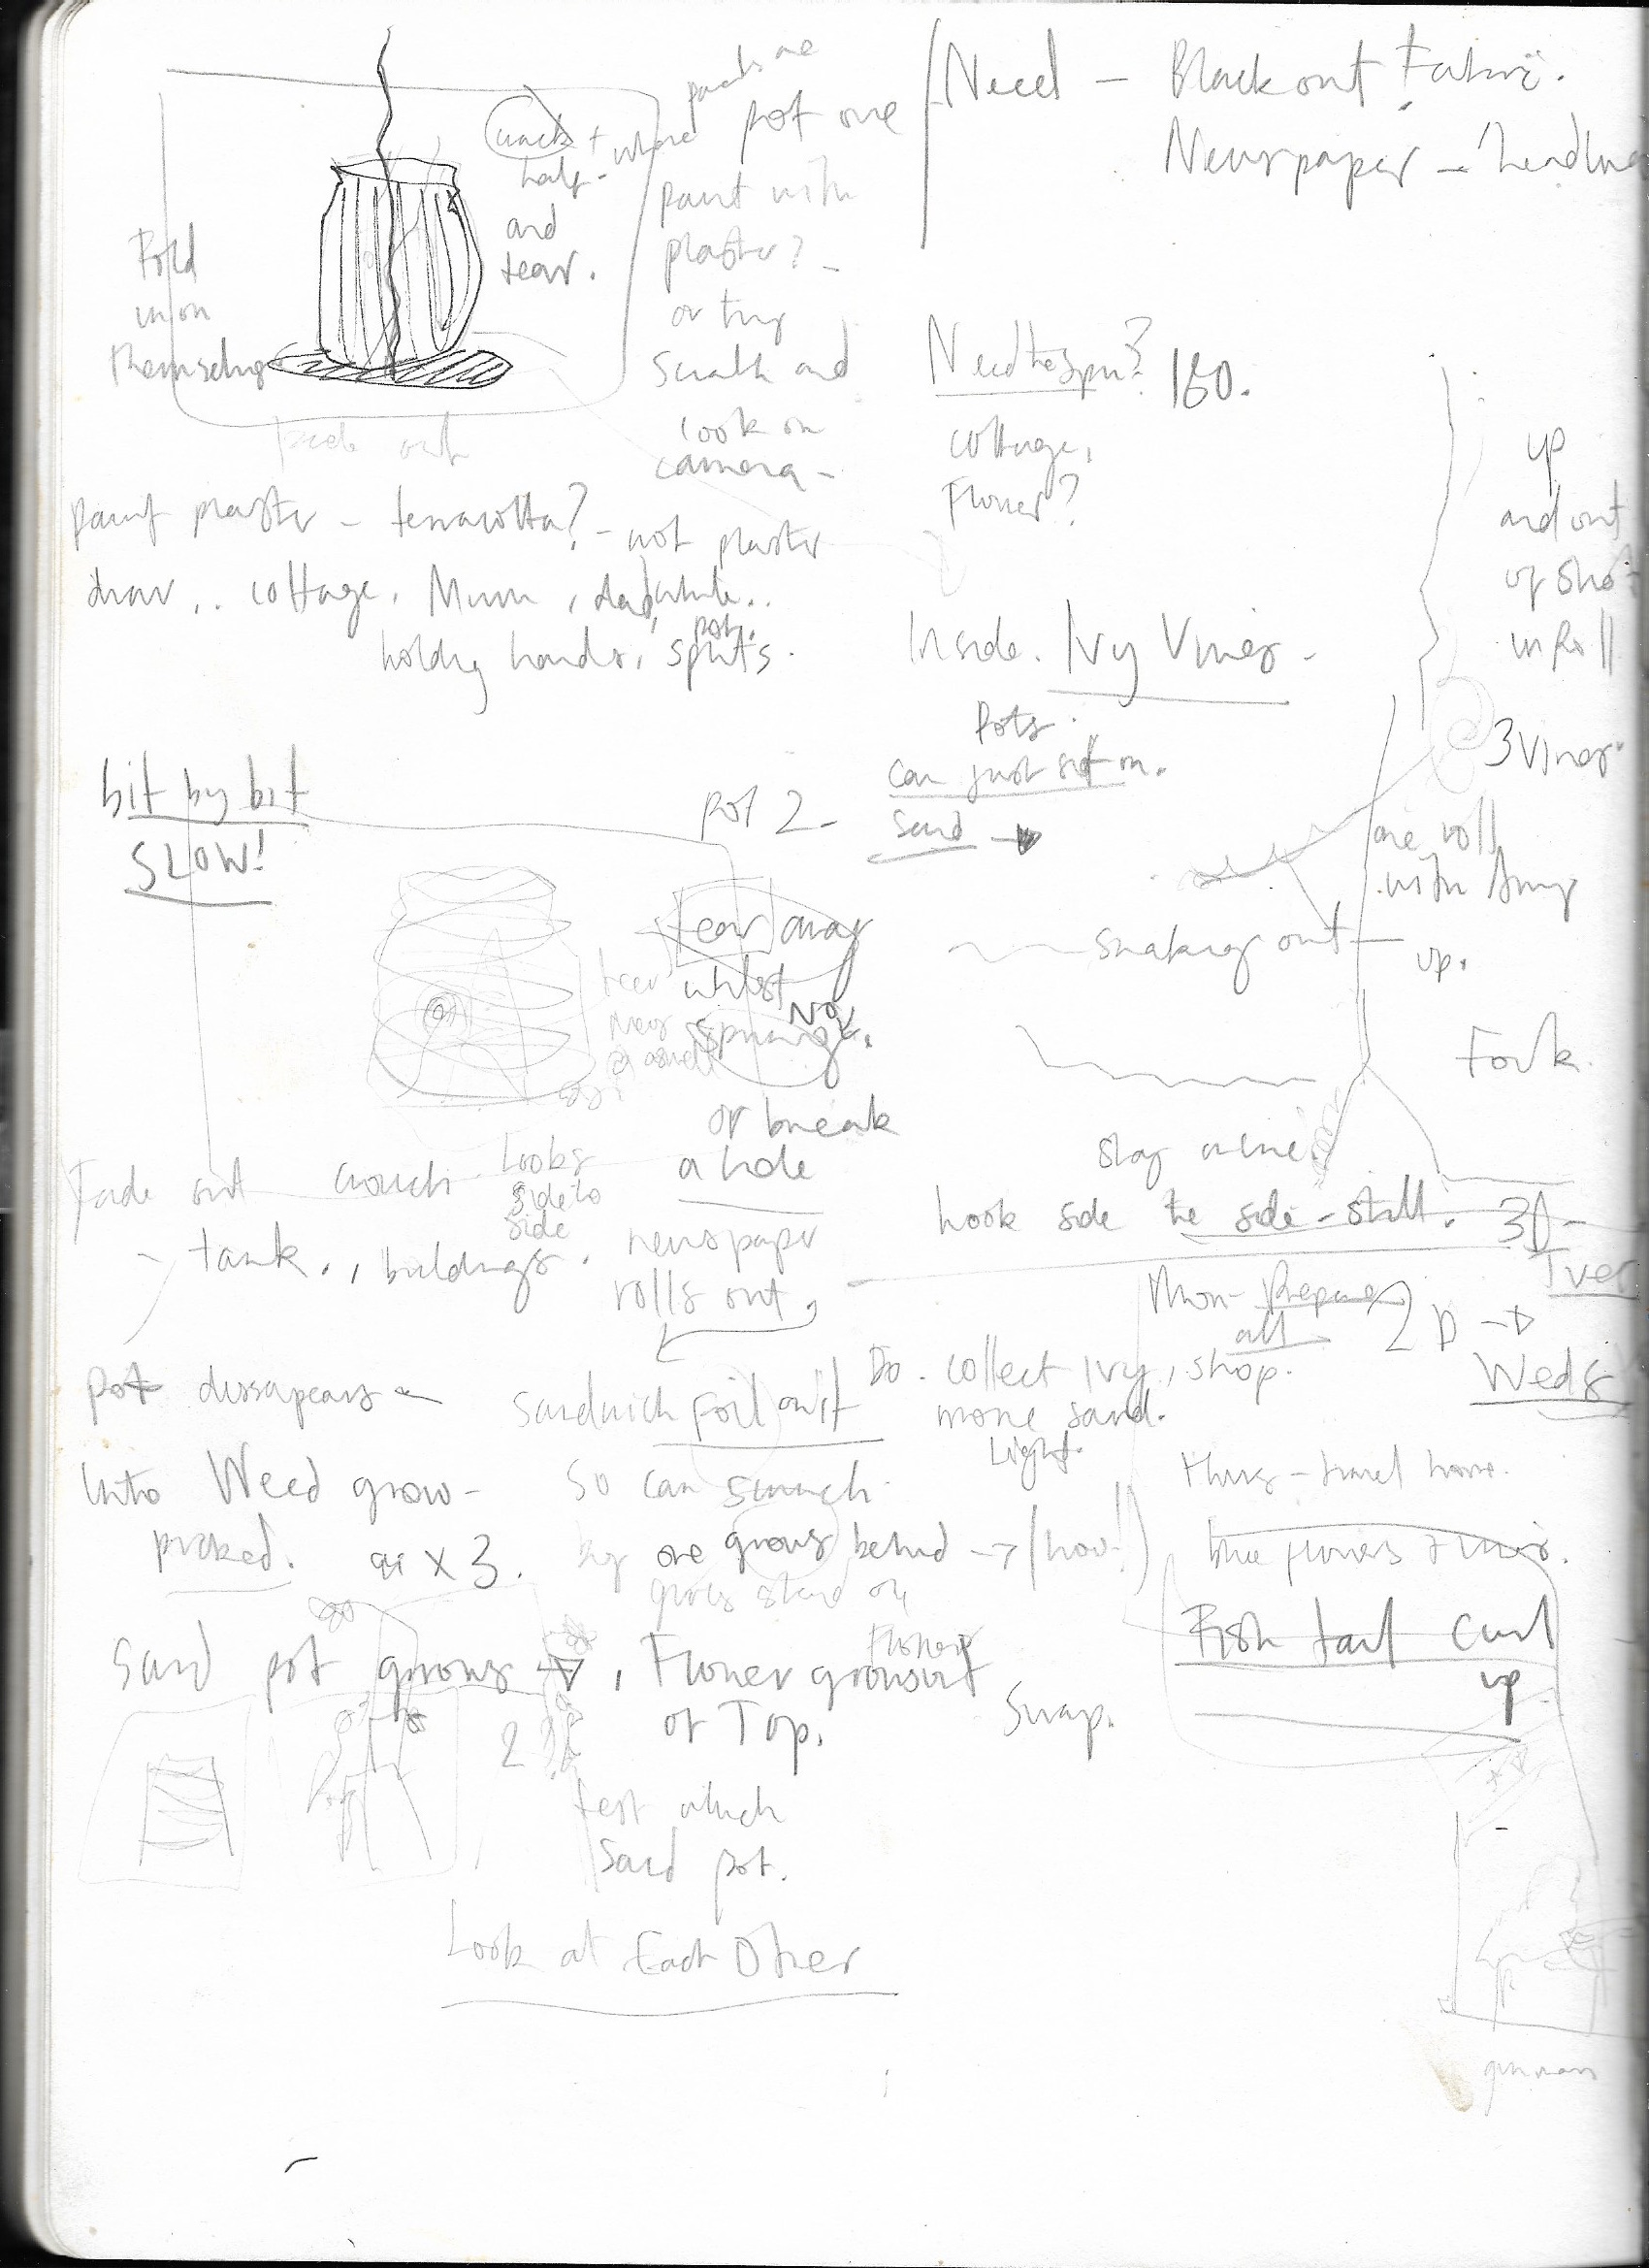 Need - Blackout Fabric.
Newspaper -
pot one
crack +
half - where
and
tear.
paint with
plaster? -
or try
scratch and
look on
camera -
Fold
in on
themselves
fade out
Need to spin? 180.
cottage,
Flower?
paint plaster - terracotta? - not plaster
draw .. cottage, Mum, dad, whole..
holding hands, pot splits.
up
and out
of shot
in Roll
Inside. Ivy Vines -
3 Vines.
one roll
with
up.
bit by bit
SLOW!
pot 2 -
Pots.
can just sit on.
sand →
tear away
whilst
spinning. NO
or break
a hole
snaking out
Fork.
stay
Look side to side - still.
3D -
Tues
Fade out
crouch
Looks
side to
side
- tank.., buildings.
newspaper
rolls out,
Mon - Prepare
all
2D →
Weds
pot dissapears -
sandwich foil on it
So can scrunch
Do. collect Ivy, shop.
more sand.
Light.
into Weed grow -
picked. x 3.
one grows behind → (how!)
Thurs - travel home.
Sand pot grows, Flower grows out
of Top.
Flower
Swap.
Fish tail curl
up
2
test which
Sand pot.
Look at Each Other